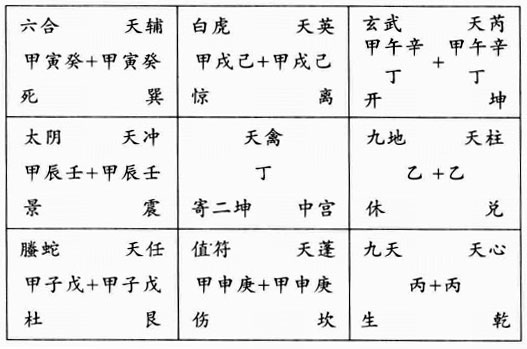 六合 天辅
甲寅癸+甲寅癸
死 巽
白虎 天英
甲戌己+甲戌己
惊 离
玄武 天芮
甲午辛 + 甲午辛
丁 丁
开 坤
太阴 天冲
甲辰壬+甲辰壬
景 震
天禽
丁
寄二坤 中宫
九地 天柱
乙+乙
休 兑
螣蛇 天任
甲子戊+甲子戊
杜 艮
值符 天蓬
甲申庚+甲申庚
伤 坎
九天 天心
丙+丙
生 乾